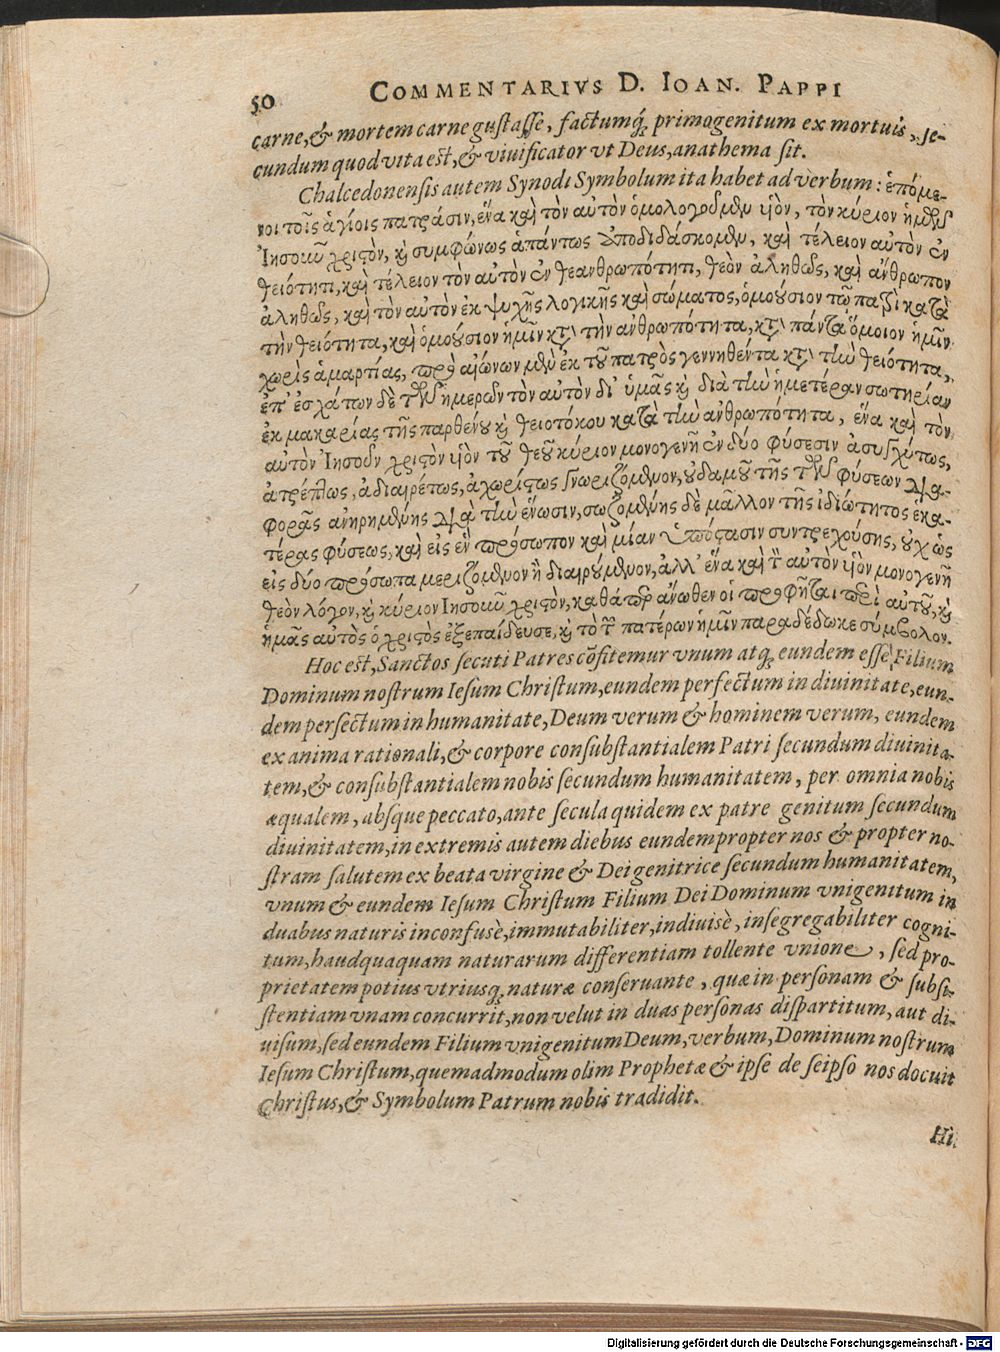 50 COMMENTARIVS D. IOAN. PAPPI
carne, & mortem carne gustasse, factumq́; primogenitum ex mortuis, se-
cundum quod vita est, & viuificator vt Deus, anathema sit.
Chalcedonensis autem Synodi Symbolum ita habet ad verbum: ἑπόμε-
νοι τοῖς ἁγίοις πατράσιν, ἕνα καὶ τὸν αὐτὸν ὁμολογοῦμεν υἱὸν, τὸν κύριον ἡμῶν
Ἰησοῦν χριστὸν, καὶ συμφώνως ἁπάντως ἀποδιδάσκομεν, καὶ τέλειον αὐτὸν ἐν
θειότητι, καὶ τέλειον τὸν αὐτὸν ἐν θεανθρωπότητι, θεὸν ἀληθῶς, καὶ ἄνθρωπον
ἀληθῶς, καὶ τὸν αὐτὸν ἐκ ψυχῆς λογικῆς καὶ σώματος, ὁμούσιον τῷ πατρὶ κατὰ
τὴν θειότητα, καὶ ὁμούσιον ἡμῖν κατὰ τὴν ἀνθρωπότητα, κατὰ πάντα ὅμοιον ἡμῖν
χωρὶς ἁμαρτίας, πρὸ αἰώνων μὲν ἐκ τοῦ πατρὸς γεννηθέντα κατὰ τὴν θειότητα,
ἐπ' ἐσχάτων δὲ τῶν ἡμερῶν τὸν αὐτὸν δι' ὑμᾶς καὶ διὰ τὴν ἡμετέραν σωτηρίαν
ἐκ μακαρίας τῆς παρθένου καὶ θειοτόκου κατὰ τὴν ἀνθρωπότητα, ἕνα καὶ τὸν
αὐτὸν Ἰησοῦν χριστὸν υἱὸν τοῦ θεοῦ κύριον μονογενῆ ἐν δύο φύσεσιν ἀσυγχύτως,
ἀτρέπτως, ἀδιαιρέτως, ἀχωρίστως γνωριζόμενον, οὐδαμοῦ τῆς τῶν φύσεων δια-
φορᾶς ἀνηρημένης διὰ τὴν ἕνωσιν, σωζομένης δὲ μᾶλλον τῆς ἰδιώτητος ἑκα-
τέρας φύσεως, καὶ εἰς ἓν πρόσωπον καὶ μίαν ὑπόστασιν συντρεχούσης, οὐχ ὡς
εἰς δύο πρόσωπα μεριζόμενον ἢ διαιρούμενον, ἀλλ' ἕνα καὶ τὸν αὐτὸν υἱὸν μονογενῆ
θεὸν λόγον, καὶ κύριον Ἰησοῦν χριστὸν, καθάπερ ἄνωθεν οἱ προφῆται περὶ αὐτοῦ, καὶ
ἡμᾶς αὐτὸς ὁ χριστὸς ἐξεπαίδευσε, καὶ τὸ τῶν πατέρων ἡμῖν παραδέδωκε σύμβολον.
Hoc est, Sanctos secuti Patres cōfitemur vnum atq; eundem esse Filium
Dominum nostrum Iesum Christum, eundem perfectum in diuinitate, eun-
dem perfectum in humanitate, Deum verum & hominem verum, eundem
ex anima rationali, & corpore consubstantialem Patri secundum diuinita-
tem, & consubstantialem nobis secundum humanitatem, per omnia nobis
æqualem, absque peccato, ante secula quidem ex patre genitum secundum
diuinitatem, in extremis autem diebus eundem propter nos & propter no-
stram salutem ex beata virgine & Dei genitrice secundum humanitatem,
vnum & eundem Iesum Christum Filium Dei Dominum vnigenitum in
duabus naturis inconfusè, immutabiliter, indiuisè, insegregabiliter cogni-
tum, haudquaquam naturarum differentiam tollente vnione, sed pro-
prietatem potius vtriusq; naturæ conseruante, quæ in personam & subsi-
stentiam vnam concurrit, non velut in duas personas dispartitum, aut di-
uisum, sed eundem Filium vnigenitum Deum, verbum, Dominum nostrum
Iesum Christum, quemadmodum olim Prophetæ & ipse de seipso nos docuit
Christus, & Symbolum Patrum nobis tradidit.
Hi
Digitalisierung gefördert durch die Deutsche Forschungsgemeinschaft - DFG